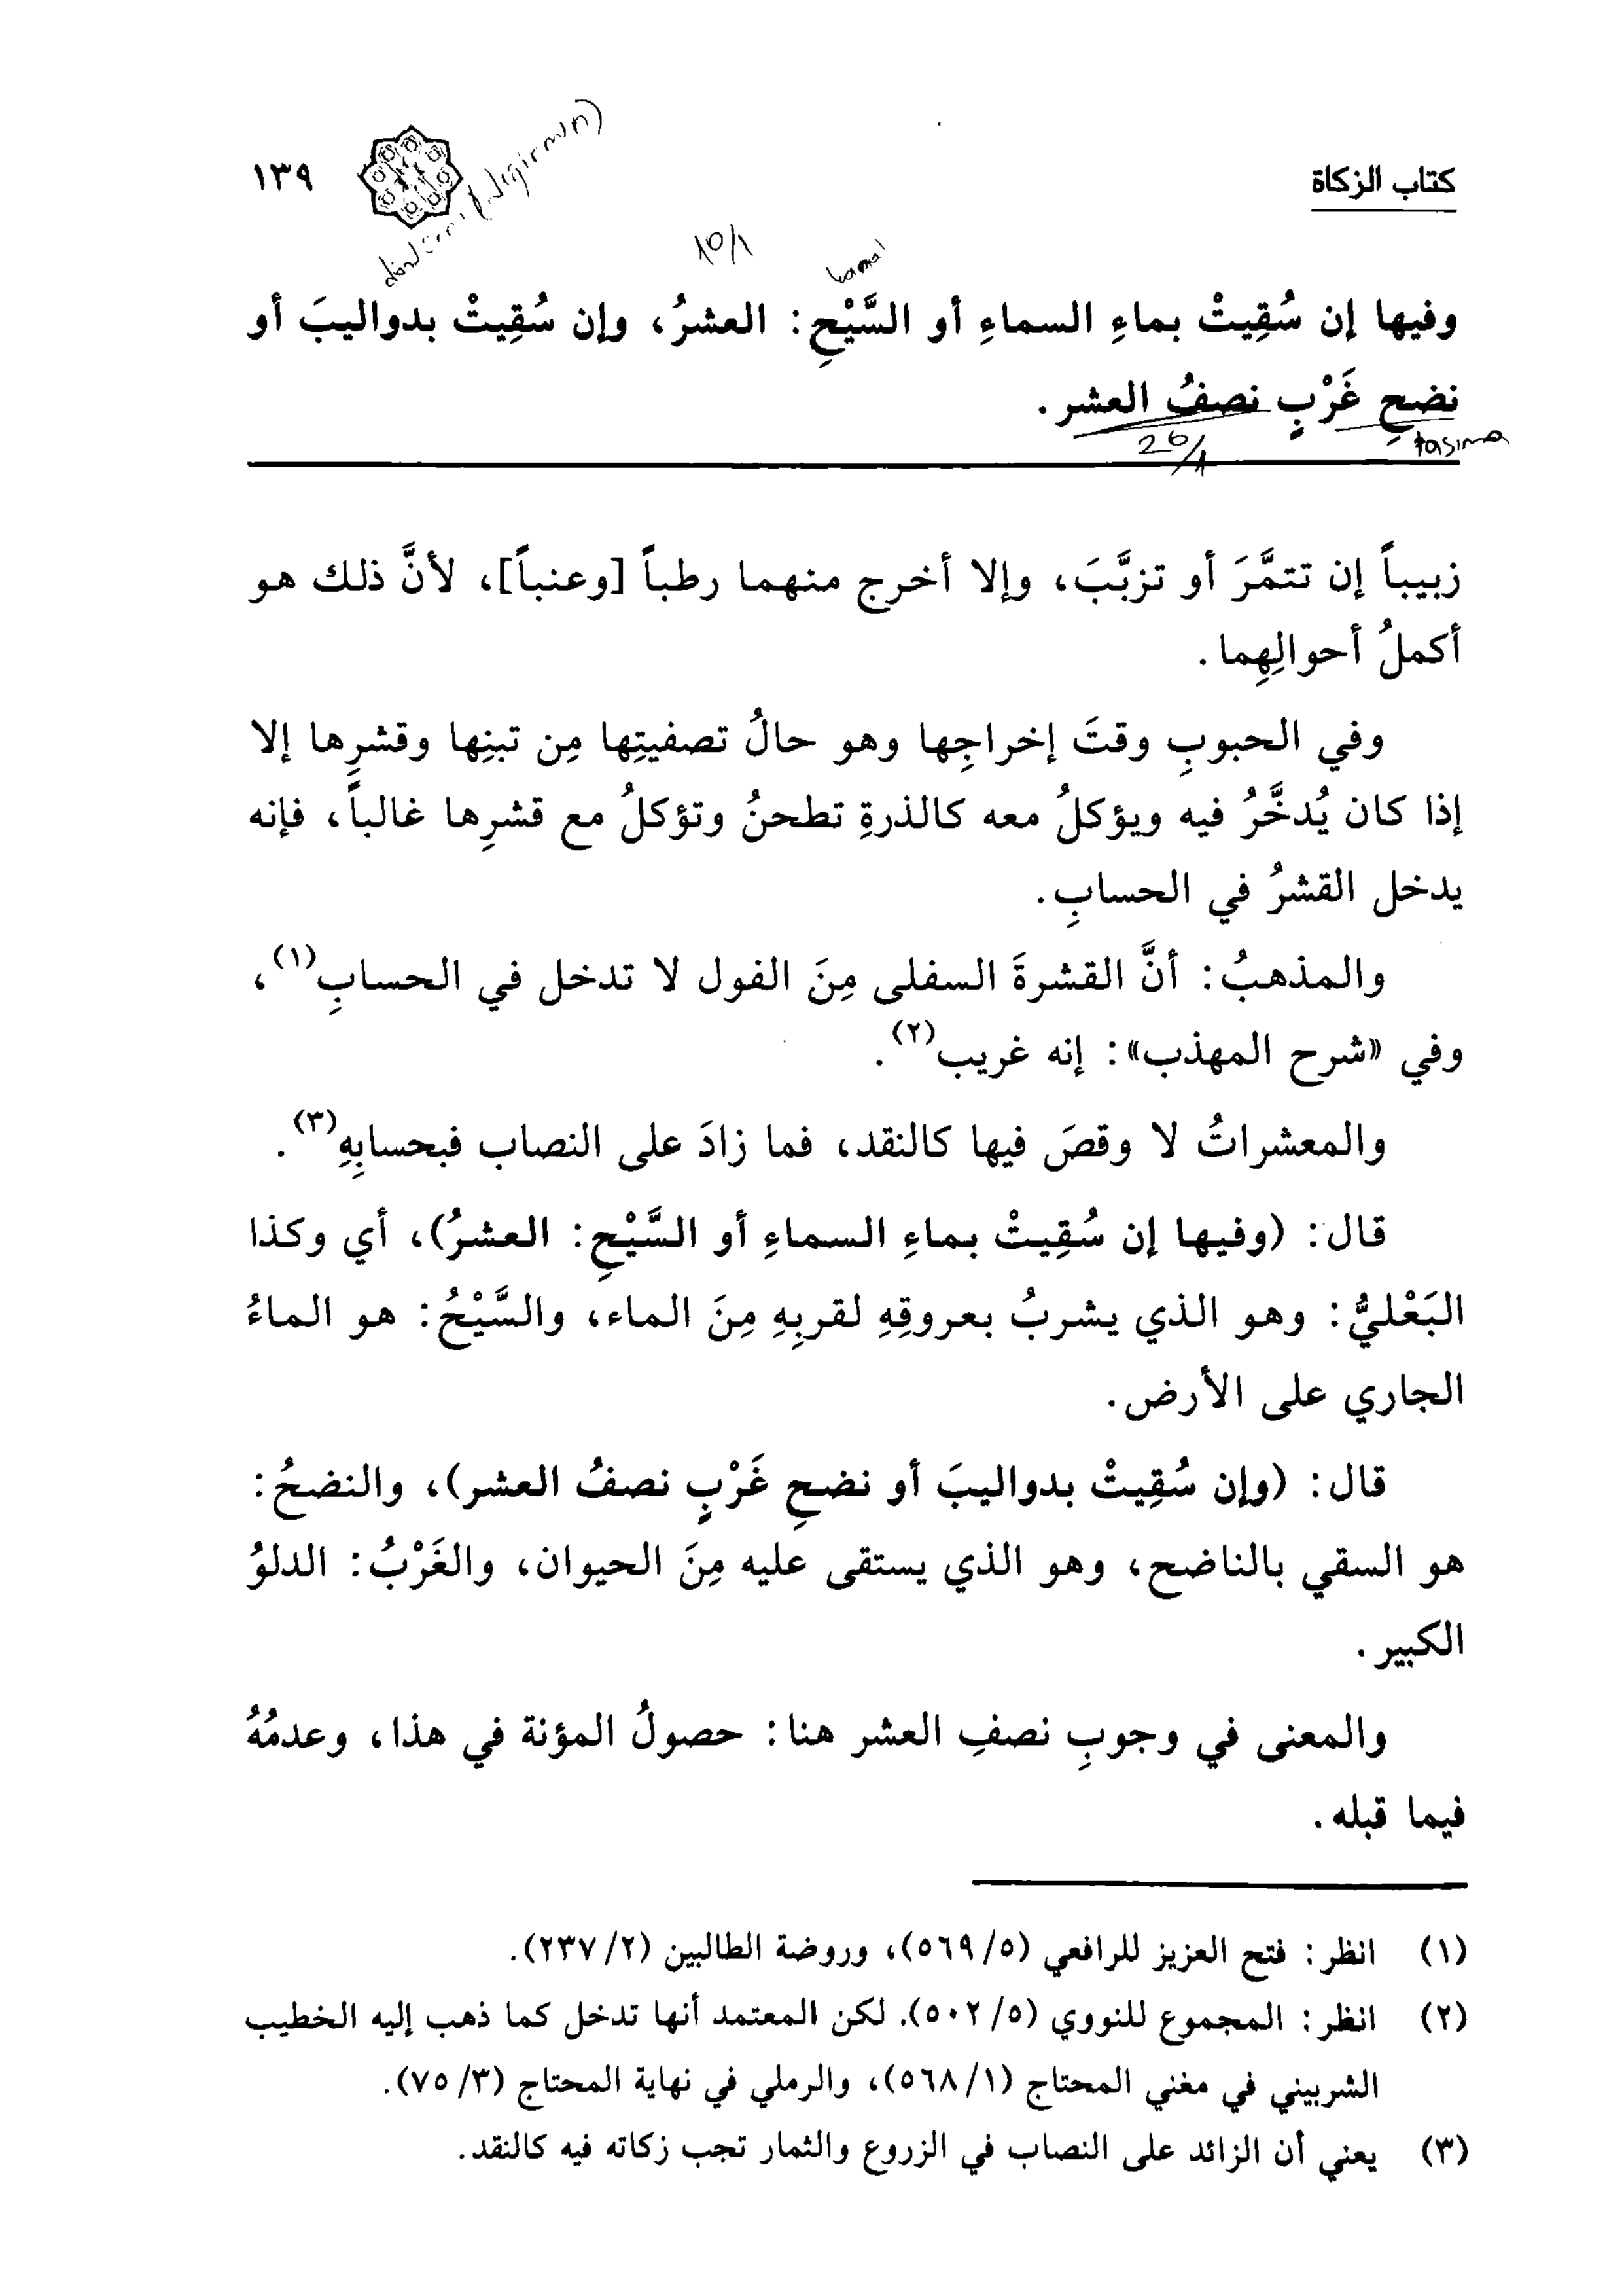 كتاب الزكاة
١٣٩
10/1
وفيها إن سُقِيتْ بماءِ السماءِ أو السَّيْحِ: العشرُ، وإن سُقِيتْ بدواليبَ أو
نضحِ غَرْبٍ نصفُ العشر.
taşıma
زبيباً إن تتمَّرَ أو تزبَّبَ، وإلا أخرج منهما رطباً [وعنباً]، لأنَّ ذلك هو
أكملُ أحوالِهِما.
وفي الحبوبِ وقتَ إخراجِها وهو حالُ تصفيتِها مِن تبنِها وقشرِها إلا
إذا كان يُدخَّرُ فيه ويؤكلُ معه كالذرةِ تطحنُ وتؤكلُ مع قشرِها غالباً، فإنه
يدخل القشرُ في الحسابِ.
والمذهبُ: أنَّ القشرةَ السفلى مِنَ الفول لا تدخل في الحسابِ(١)،
وفي «شرح المهذب»: إنه غريب(٢).
والمعشراتُ لا وقصَ فيها كالنقد، فما زادَ على النصاب فبحسابِهِ(٣).
قال: (وفيها إن سُقِيتْ بماءِ السماءِ أو السَّيْحِ: العشرُ)، أي وكذا
البَعْليُّ: وهو الذي يشربُ بعروقِهِ لقربِهِ مِنَ الماء، والسَّيْحُ: هو الماءُ
الجاري على الأرض.
قال: (وإن سُقِيتْ بدواليبَ أو نضحِ غَرْبٍ نصفُ العشر)، والنضحُ:
هو السقي بالناضح، وهو الذي يستقى عليه مِنَ الحيوان، والغَرْبُ: الدلوُ
الكبير.
والمعنى في وجوبِ نصفِ العشر هنا: حصولُ المؤنة في هذا، وعدمُهُ
فيما قبله.
(١) انظر: فتح العزيز للرافعي (٥/ ٥٦٩)، وروضة الطالبين (٢/ ٢٣٧).
(٢) انظر: المجموع للنووي (٥/ ٥٠٢). لكن المعتمد أنها تدخل كما ذهب إليه الخطيب
الشربيني في مغني المحتاج (١/ ٥٦٨)، والرملي في نهاية المحتاج (٣/ ٧٥).
(٣) يعني أن الزائد على النصاب في الزروع والثمار تجب زكاته فيه كالنقد.